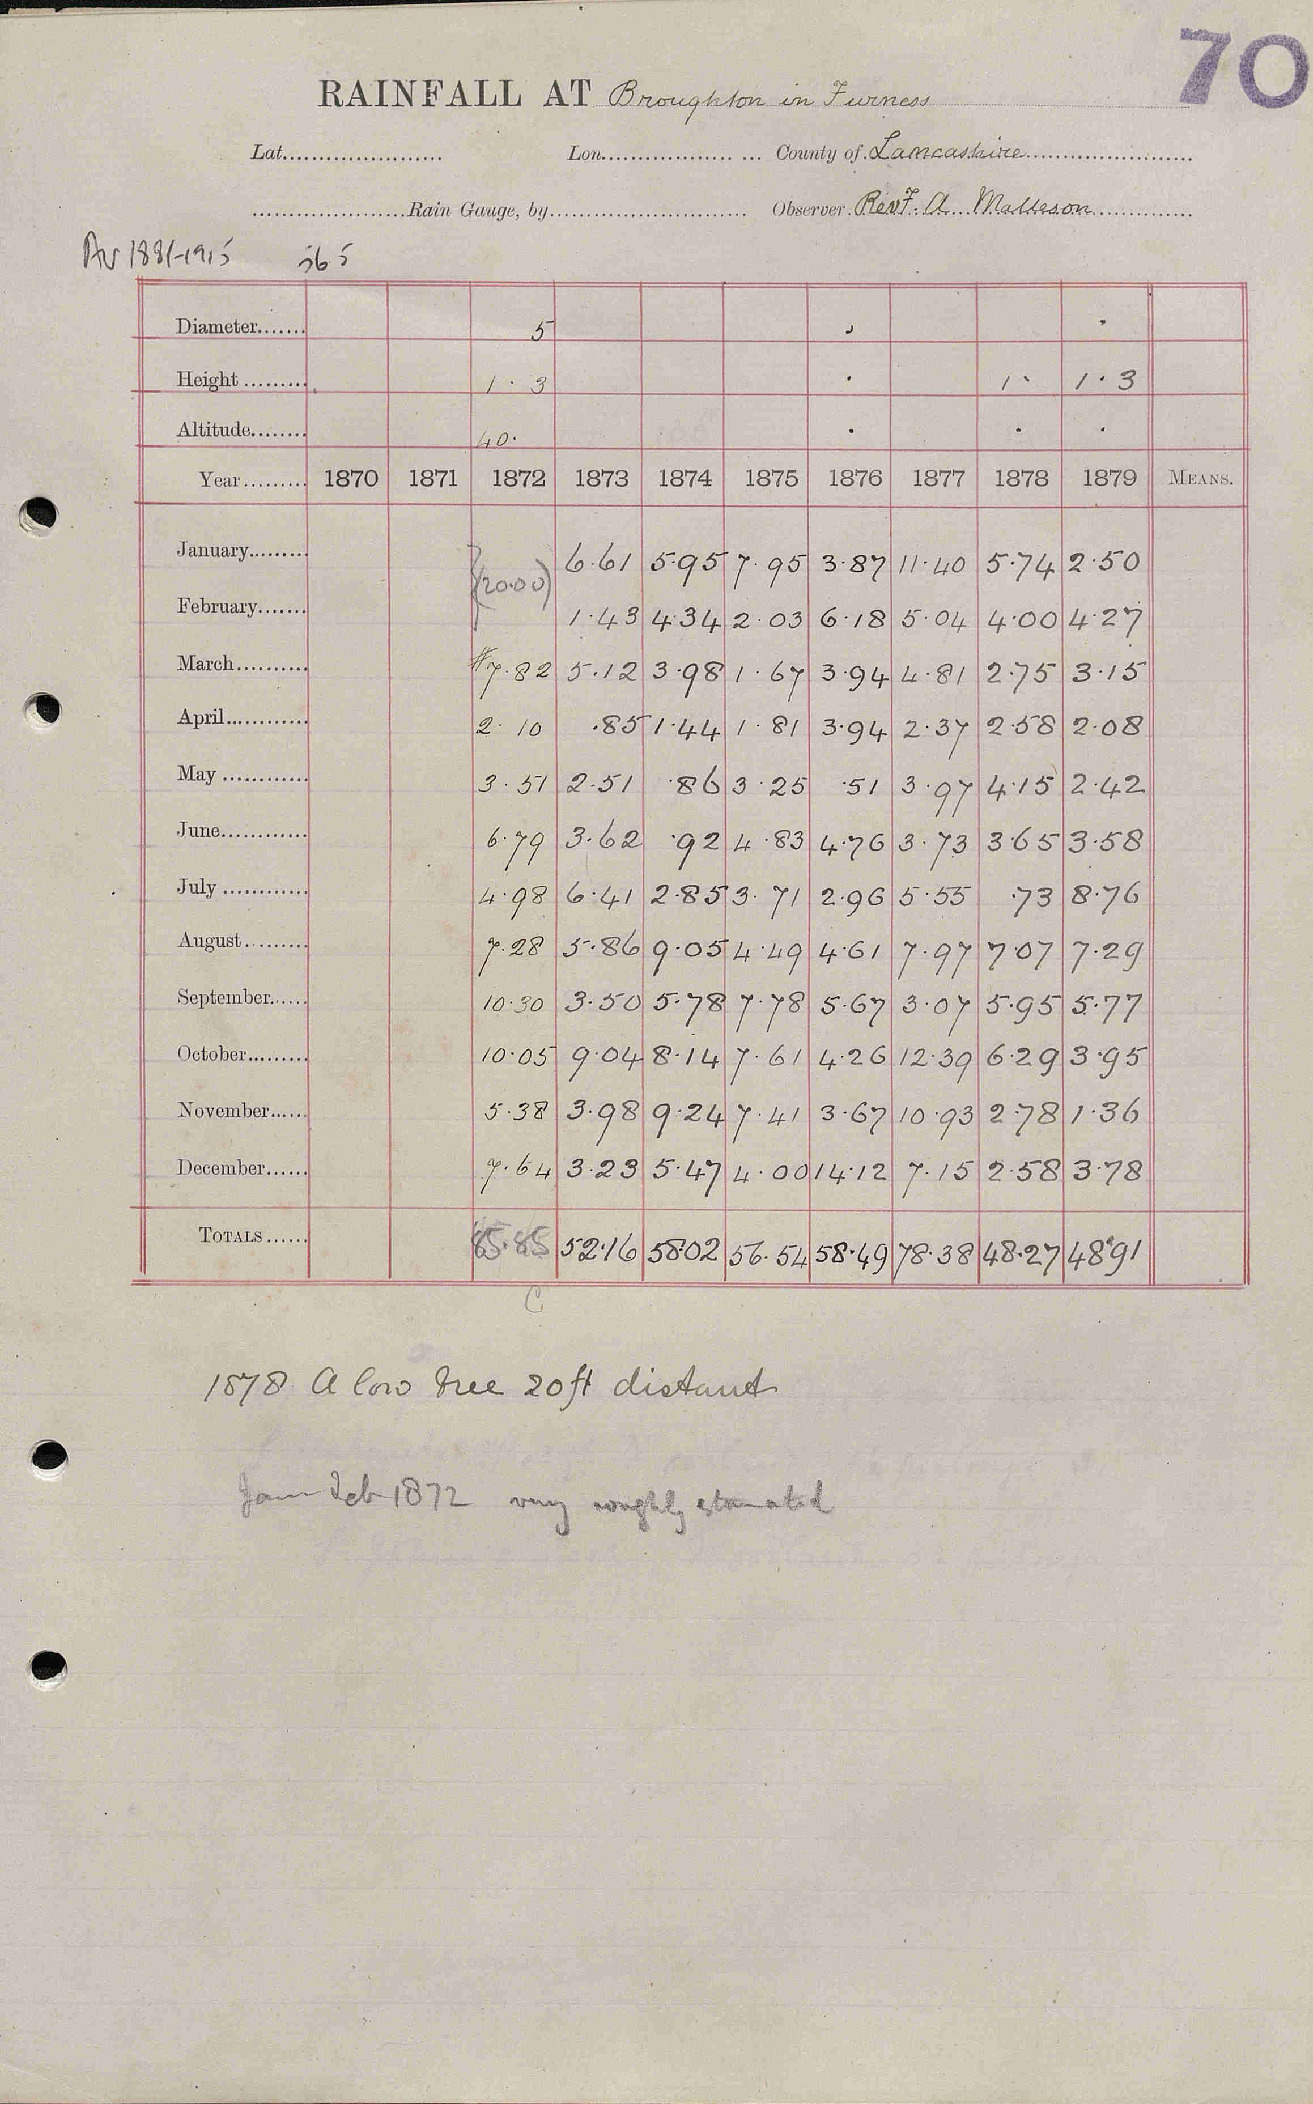 70
RAINFALL AT Broughton in Furness
Lat...................... Lon.................. ... County of Lancashire
......................Rain Gauge, by........................... Observer Rev F. A. Malleson
Av 1881-1915 56 5
Diameter....... 5 . .
Height ......... 1 . 3 . 1 . 1 . 3
Altitude........ 40. . . .
Year......... 1870 1871 1872 1873 1874 1875 1876 1877 1878 1879 MEANS.
January......... 6.61 5.95 7.95 3.87 11.40 5.74 2.50
(20.00)
February....... 1.43 4.34 2.03 6.18 5.04 4.00 4.27
March.......... #7.82 5.12 3.98 1.67 3.94 4.81 2.75 3.15
April............ 2.10 .85 1.44 1.81 3.94 2.37 2.58 2.08
May ............ 3.51 2.51 .86 3.25 .51 3.97 4.15 2.42
June............ 6.79 3.62 .92 4.83 4.76 3.73 3.65 3.58
July ............ 4.98 6.41 2.85 3.71 2.96 5.55 .73 8.76
August.......... 7.28 5.86 9.05 4.49 4.61 7.97 7.07 7.29
September...... 10.30 3.50 5.78 7.78 5.67 3.07 5.95 5.77
October......... 10.05 9.04 8.14 7.61 4.26 12.39 6.29 3.95
November...... 5.38 3.98 9.24 7.41 3.67 10.93 2.78 1.36
December...... 7.64 3.23 5.47 4.00 14.12 7.15 2.58 3.78
TOTALS...... 85.85 52.16 58.02 56.54 58.49 78.38 48.27 48.91
C
1878 A low tree 20ft distant
Jan Feb 1872 very roughly estimated